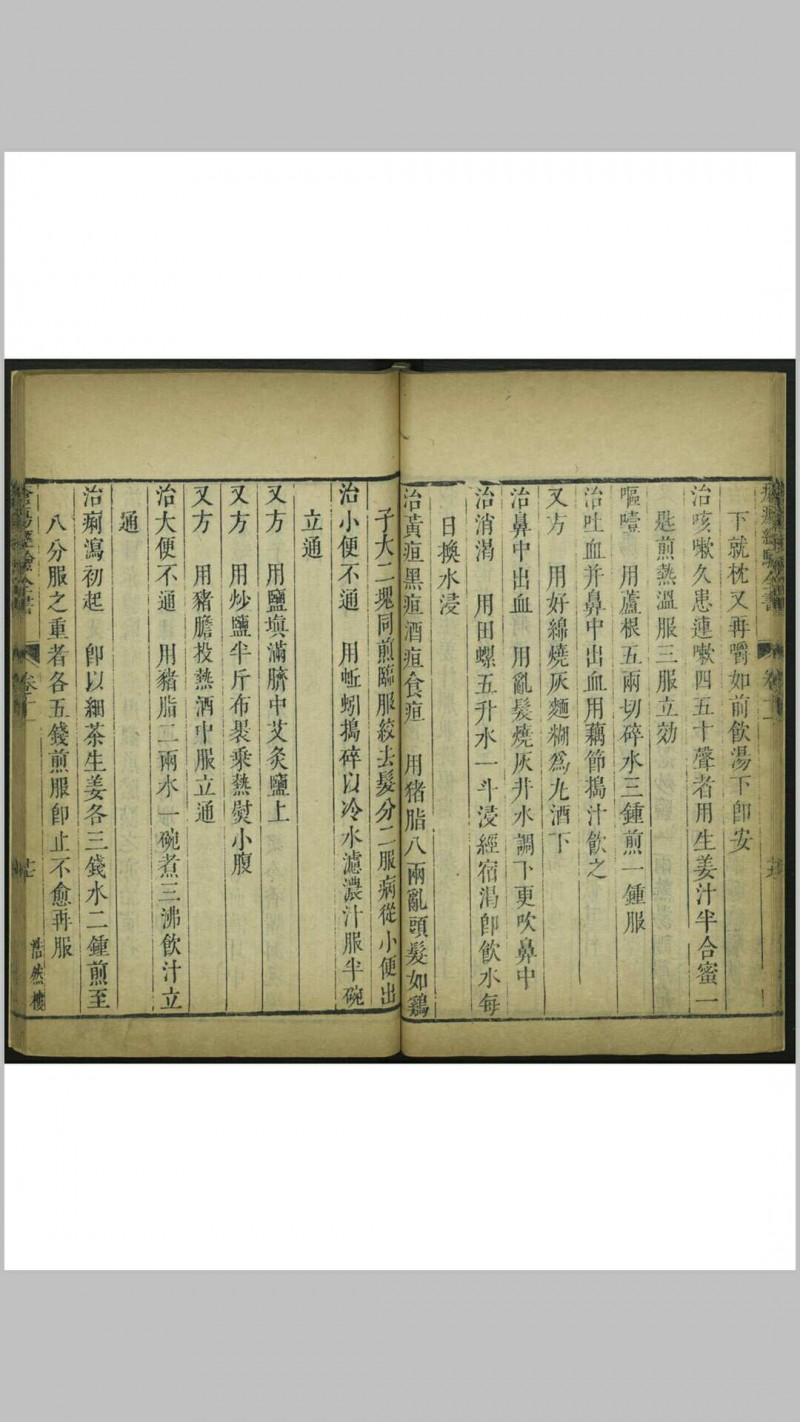 下就枕又再嚼如前飲湯下卽安
治咳嗽久患連嗽四五十聲者用生姜汁半合蜜一
匙煎熱溫服三服立効
嘔噎　用蘆根五兩切碎水三鍾煎一鍾服
治吐血并鼻中出血用藕節搗汁飲之
又方　用好綿燒灰麵糊爲丸酒下
治鼻中出血　用亂髮燒灰井水調下更吹鼻中
治消渴　用田螺五升水一斗浸經宿渴卽飲水每
日換水浸
治黃疸黑疸酒疸食疸　用猪脂八兩亂頭髮如鷄
子大二塊同煎臨服絞去髮分二服病從小便出
治小便不通　用蚯蚓搗碎以冷水濾濃汁服半碗
立通
又方　用鹽塡滿臍中艾灸鹽上
又方　用炒鹽半斤布褁乘熱熨小腹
又方　用豬膽投熱酒中服立通
治大便不通　用豬脂二兩水一碗煮三沸飲汁立
通
治痢瀉初起　卽以細茶生姜各三錢水二鍾煎至
八分服之重者各五錢煎服卽止不愈再服
浩然樓